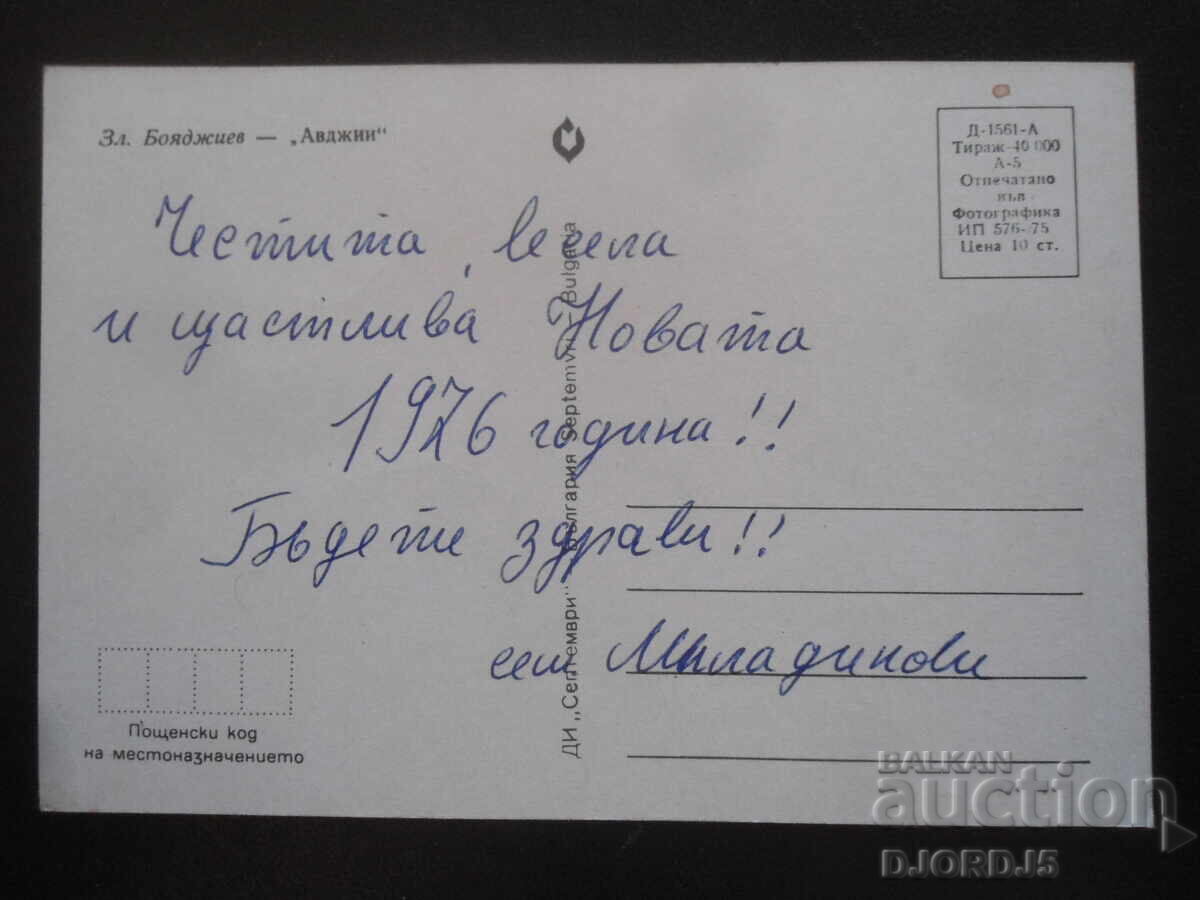 Зл. Бояджиев — „Авджии“
Д-1561-А
Тираж 40 000
А-5
Отпечатано
във
Фотографика
ИП 576-75
Цена 10 ст.
Честита, весела
и щастлива Новата
1976 година!!
Бъдете здрави!!
сем Младинови
ДИ „Септември“ България Septemvri – Bulgaria
Пощенски код
на местоназначението
BALKAN
auction
DJORDJ5